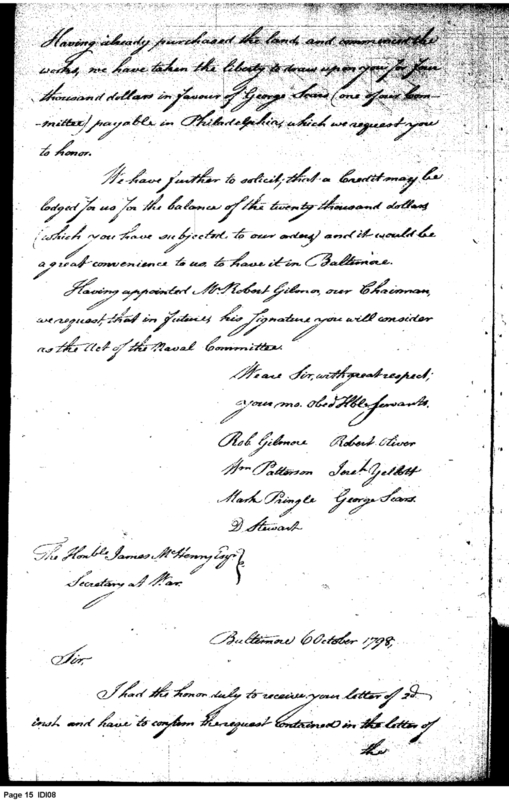 Having already purchased the land, and commenced the
works, we have taken the liberty to draw upon you for four
thousand dollars in favour of George Sears (one of our Com-
-mittee) payable in Philadelphia, which we request you
to honor.
We have further to solicit, that a Credit may be
lodged for us for the balance of the twenty thousand dollars
(which you have subjected to our orders) and it would be
a great convenience to us, to have it in Baltimore.
Having appointed Mr. Robert Gilmor, our Chairman,
we request, that in future, his signature you will consider
as the Act of the Naval Committee.
We are Sir, with great respect,
your mo. Obed Hble Servants.
Rob Gilmore Robert Oliver
Wm Patterson Jere.h Yellott
Mark Pringle George Sears
D Stewart
The Honble James McHenry Esqr.
Secretary at War.
Baltimore 6 October 1798,
Sir,
I had the honor duly to receive your letter of 3d
inst. and have to confirm the request contained in the letter of
the
Page 15 IDI08